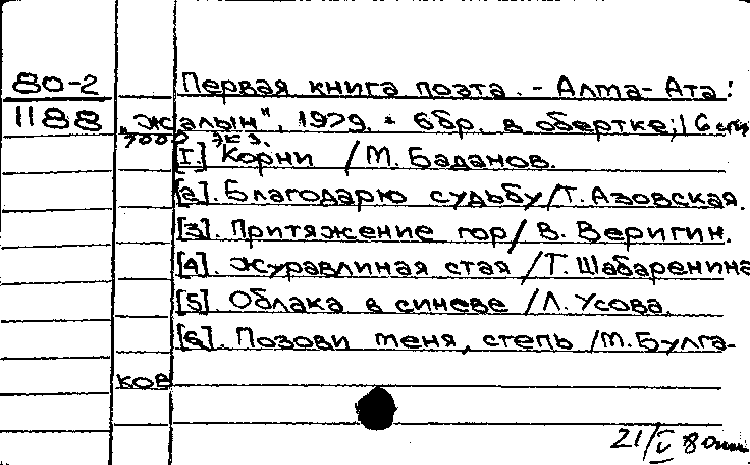 80-2 Первая книга поэта. - Алма-Ата:
1188 „Жалын", 1979. - 6 бр. в обертке; 16 см
7000 экз.
[1.] Корни /М. Баданов.
[2]. Благодарю судьбу/Т. Азовская.
[3]. Притяжение гор/ В. Веригин.
[4]. Журавлиная стая /Т. Шабаренина
[5]. Облака в синеве /Л. Усова.
[6]. Позови меня, степь /М. Булга-
ков
21/V 80